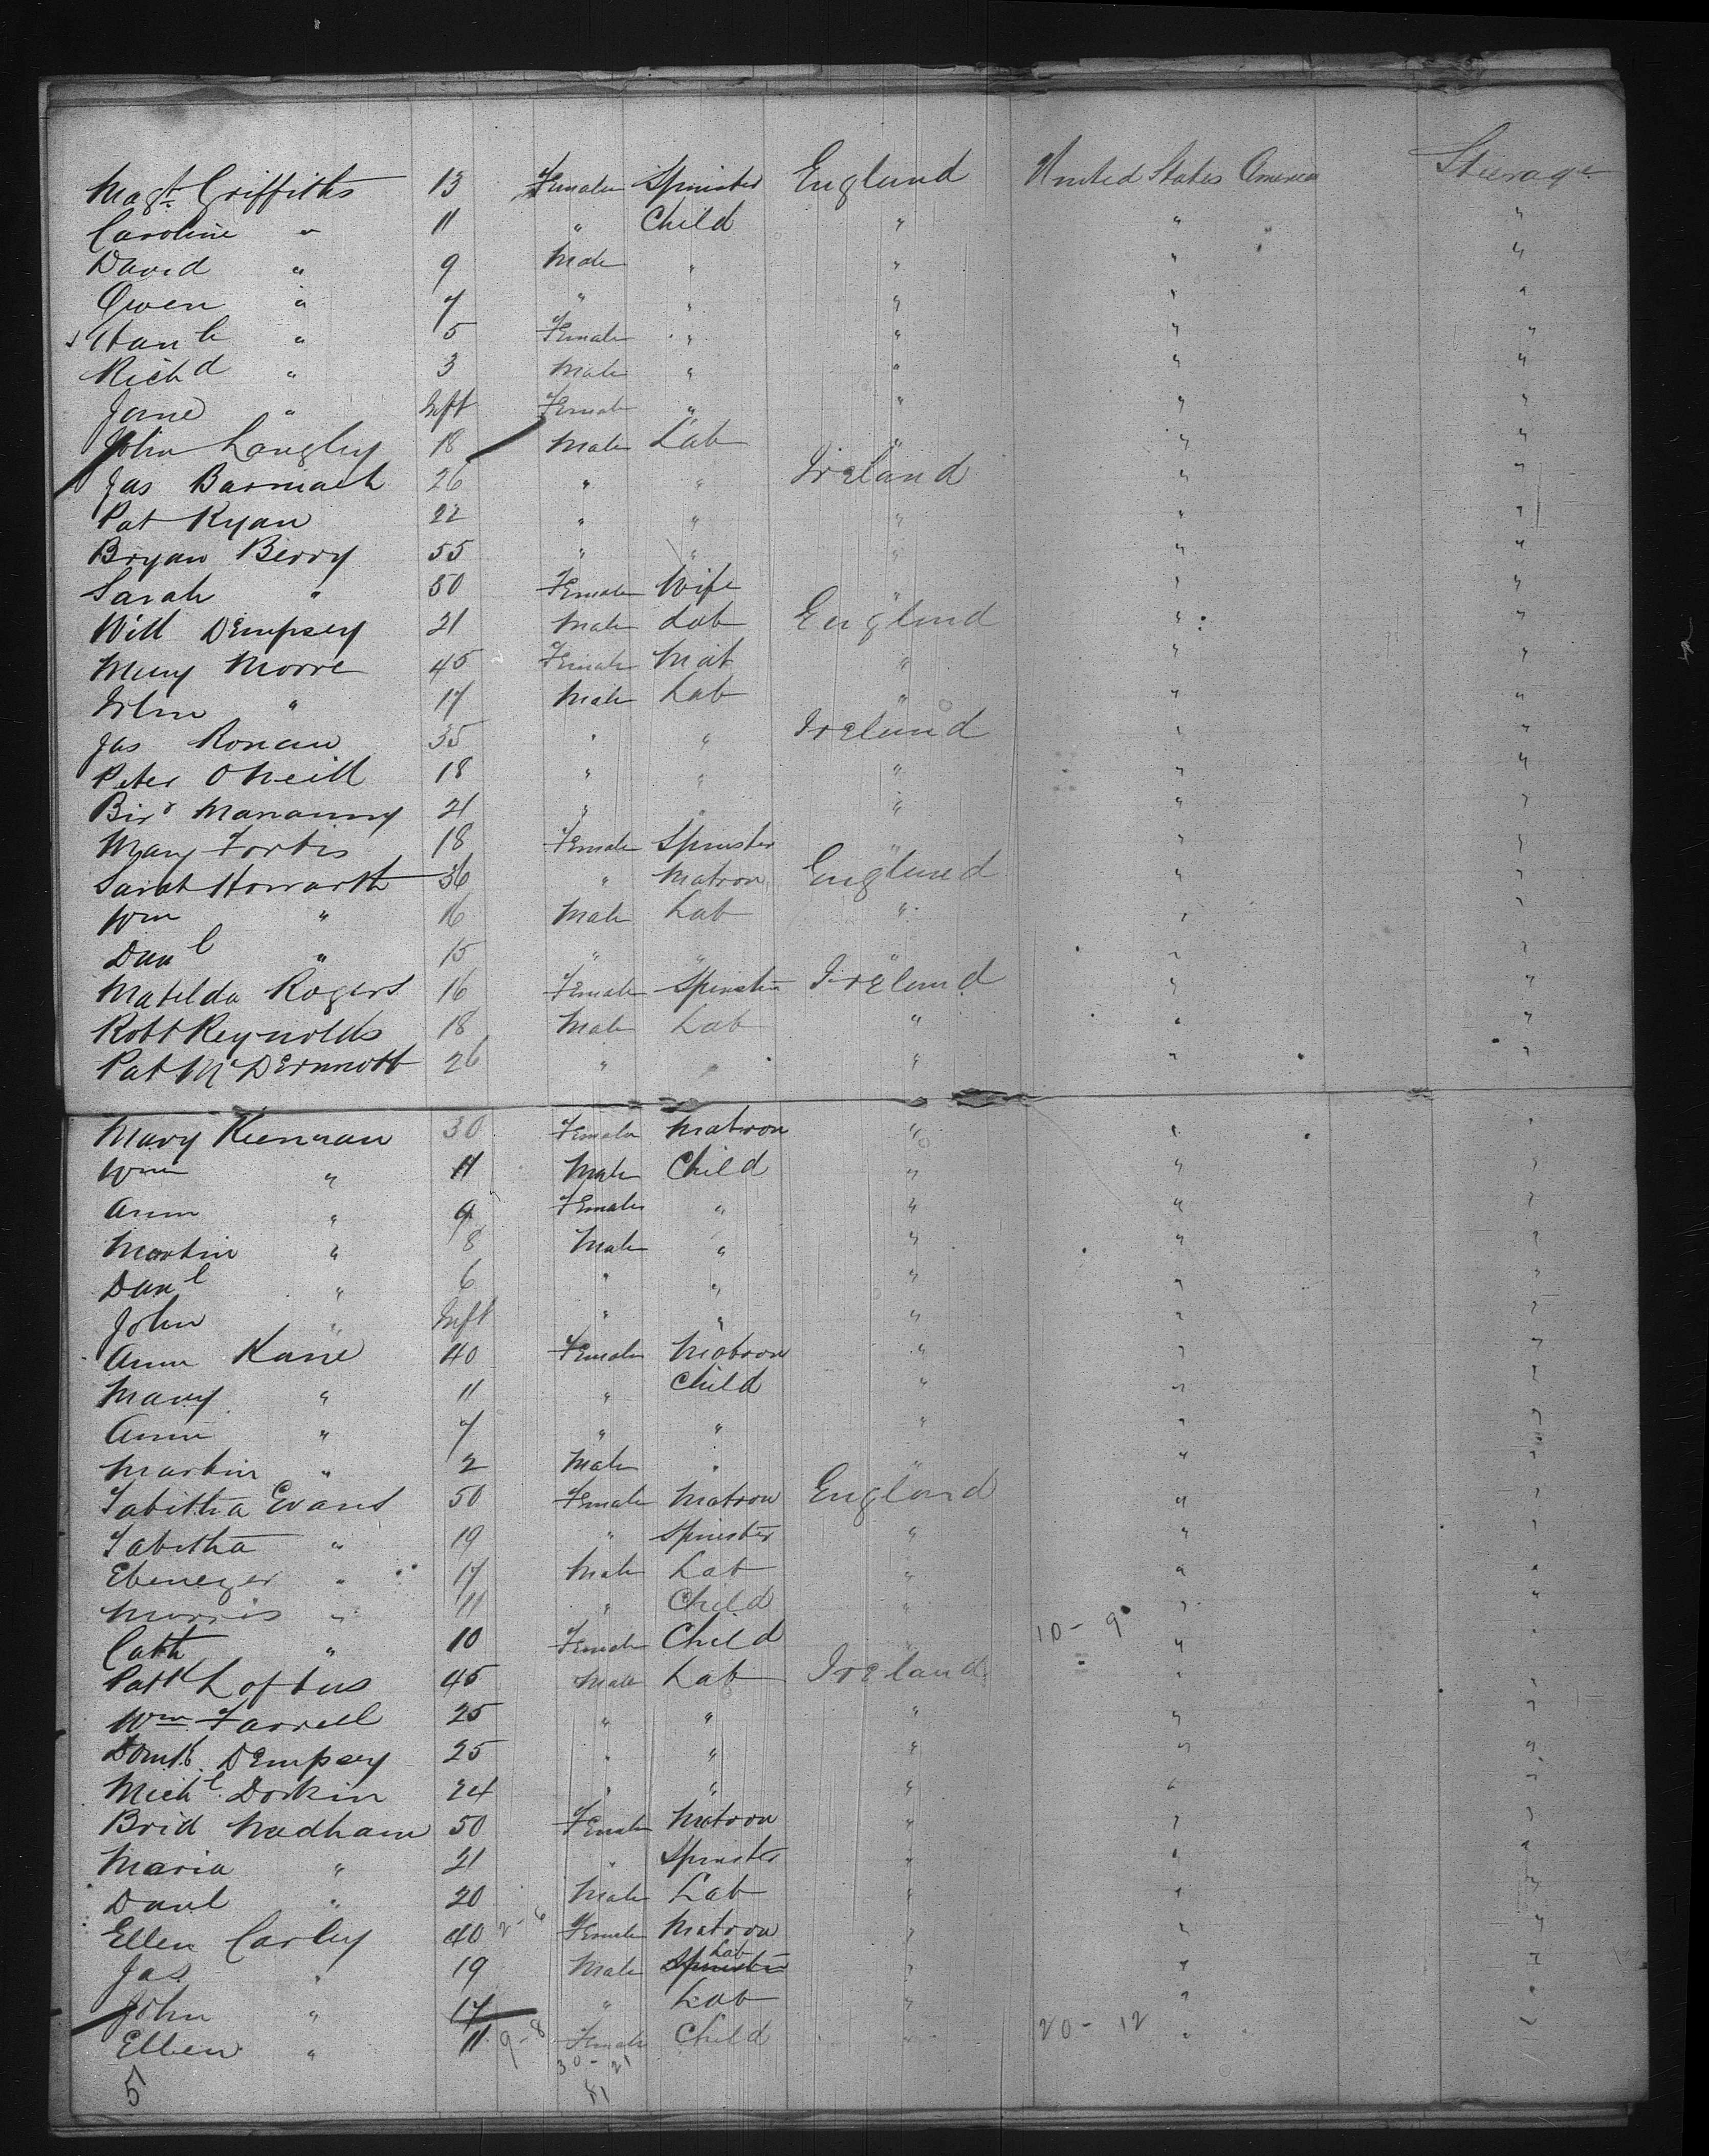 Magt Griffiths 13 Female Spinster England United States America Steerage
Caroline " 11 " Child " " "
David " 9 Male " " " "
Owen " 7 " " " " "
Hanh " 5 Female " " " "
Richd " 3 Male " " " "
Jane " Inft Female " " " "
John Langley 18 Male Lab " " "
Jas Barmach 26 " " Ireland " "
Pat Ryan 22 " " " " "
Bryan Berry 55 " " " " "
Sarah " 50 Female Wife " " "
Will Dempsey 21 Male Lab England " "
Mary Moore 45 Female Mat " " "
John " 17 Male Lab " " "
Jas Ronan 35 " " Ireland " "
Peter ONeill 18 " " " " "
21 " " " " "
Mary Forbis 18 Female Spinster " " "
Sarah Howarth 36 " Matron England " "
Wm " 16 Male Lab " " "
Danl " 15 " " " " "
Matilda Rogers 16 Female Spinster Ireland " "
Robt Reynolds 18 Male Lab " " "
Pat McDermott 26 " " " " "
Mary Keenan 30 Female Matron " " "
Wm " 11 Male Child " " "
Ann " 9 Female " " " "
Martin " 8 Male " " " "
Danl " 6 " " " " "
John " Inft " " " " "
Ann Kane 40 Female Matron " " "
Mary " 11 " Child " " "
Ann " 7 " " " " "
Martin " 2 Male " " " "
Tabitha Evans 50 Female Matron England " "
Tabitha " 19 " Spinster " " "
Ebenezer " 17 Male Lab " " "
Morris " 11 " Child " " "
Cath " 10 Female Child " 10 - 9 " "
Patk Loftus 45 Male Lab Ireland " "
Wm Farrell 25 " " " " "
Dempsey 25 " " " " "
Michl Dorkin 24 " " " " "
Brid Nadham 50 Female Matron " " "
Maria " 21 " Spinster " " "
Danl " 20 Male Lab " " "
Ellen Carley 40 2 - 6 Female Matron " " "
Jas " 19 Male Spinster Lab " " "
John " 17 " Lab " " "
Ellen " 11 9 - 8 Female Child " 20 - 12 "
30 - 21
5 81